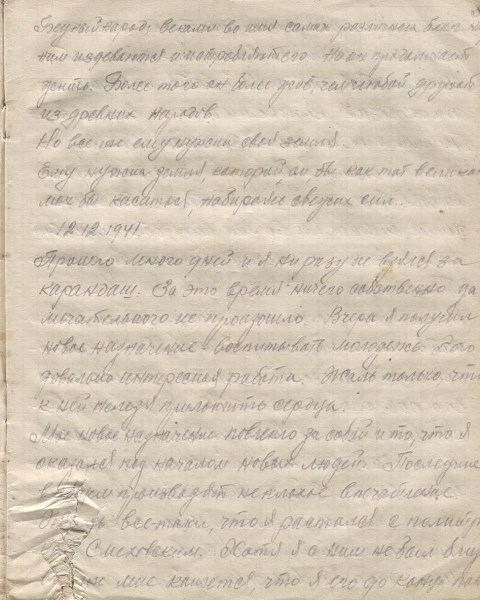 Бедный народ, веками во имя самых различных благ над
ним издеваются и истребляют его. Но он продолжает
жить. Более того он более жив, чем любой другой
из древних народов.
Но все же ему нужна своя земля.
Ему нужна земля, которой он бы как тот великан
мог бы касаться, набираясь свежих сил.
12.12.1941
Прошло много дней и я ни разу не взялся за
карандаш. За это время ничего собственно за
мечательного не произошло. Вчера я получил
новое назначение - воспитывать молодежь. Это
довольно интересная работа. Жаль только, что
к ней нельзя приложить сердца.
Мое новое назначение повлекло за собой и то, что я
оказался под началом новых людей. Последние
в общем производят неплохое впечатление.
все-таки, что я расстался с
Смеховским. Хотя я с ним не был
мне кажется, что я его до конца